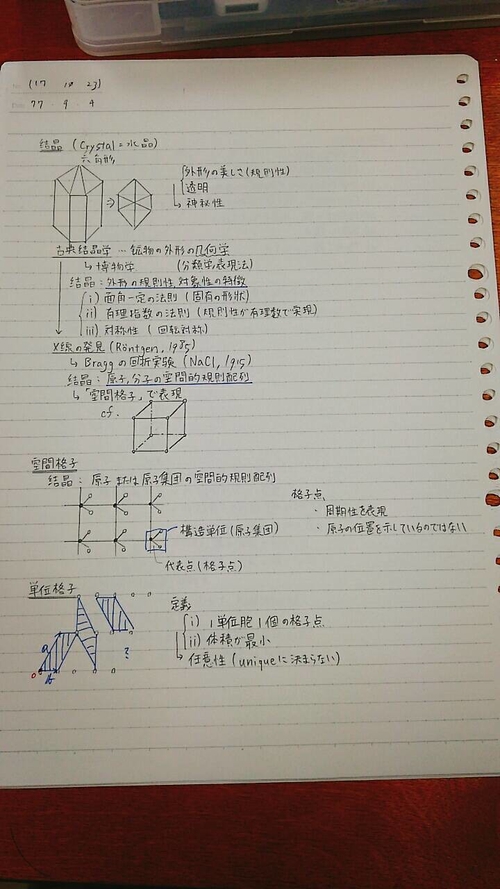 (17 10 23)
77 9 4
結晶 (Crystal = 水晶)
六角形
外形の美しさ(規則性)
透明
↳ 神秘性
古典結晶学 … 鉱物の外形の幾何学
↳ 博物学 (分類学,表現法)
結晶 : 外形の規則性,対象性の特徴
i) 面角一定の法則 (固有の形状)
ii) 有理指数の法則 (規則性が有理数で実現)
iii) 対称性 (回転対称)
X線の発見 (Röntgen, 1985)
↳ Braggの回折実験 (NaCl, 1915)
結晶 : 原子,分子の空間的規則配列
↳「空間格子」で表現
cf.
空間格子
結晶 : 原子または原子集団の空間的規則配列
格子点
・周期性を表現
・原子の位置を示しているのではない
構造単位(原子集団)
代表点(格子点)
単位格子
定義
i) 1単位胞1個の格子点
ii) 体積が最小
↳ 任意性 (uniqueに決まらない)
a
b
o
?